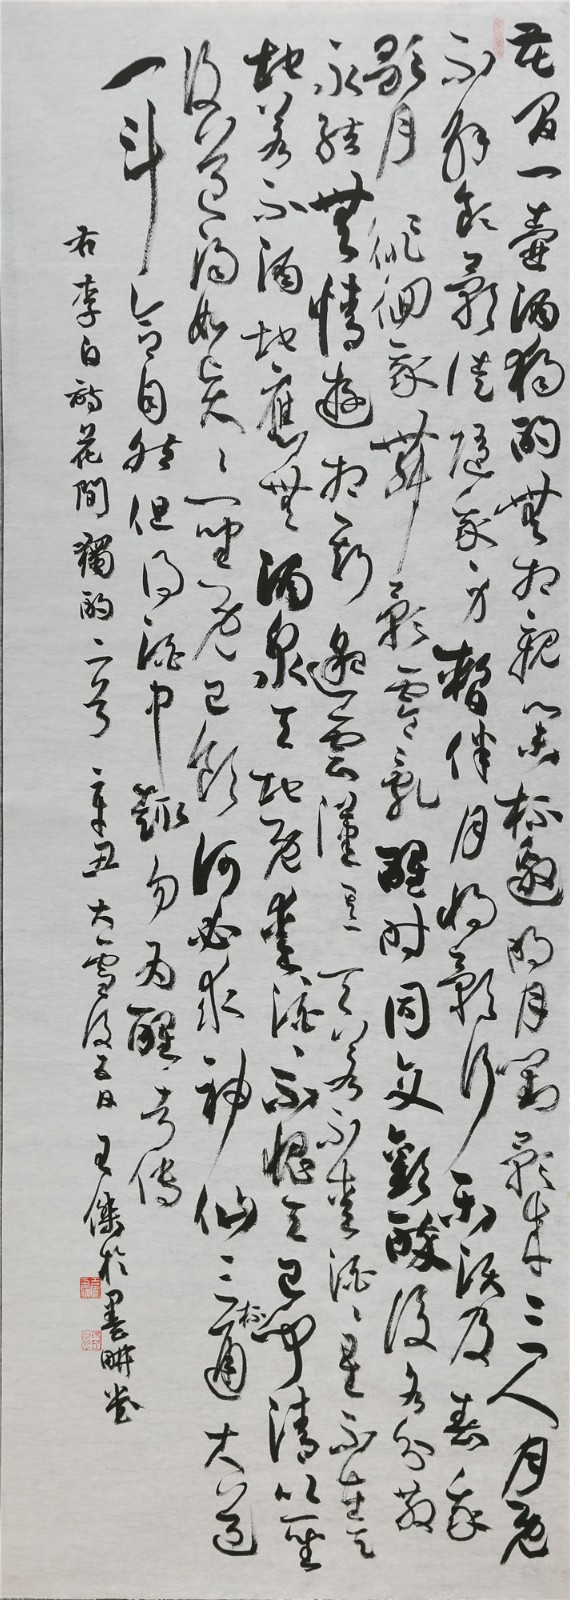 花间一壶酒独酌無相親举杯邀明月對影成三人月既
不解飲影徒随我身暫伴月将影行樂須及春我
歌月徘徊我舞影零乱醒时同交歡醉後各分散
永结無情遊相期邈雲漢其二天若不爱酒酒星不在天
地若不酒地應無酒泉天地既爱酒爱酒不愧天已聞清比聖
復道濁如賢賢聖既已飲何必求神仙三杯通大道
一斗合自然但得酒中趣勿为醒者傳
右李白詩花間獨酌二首 辛丑大雪後五日王傑於墨耕堂